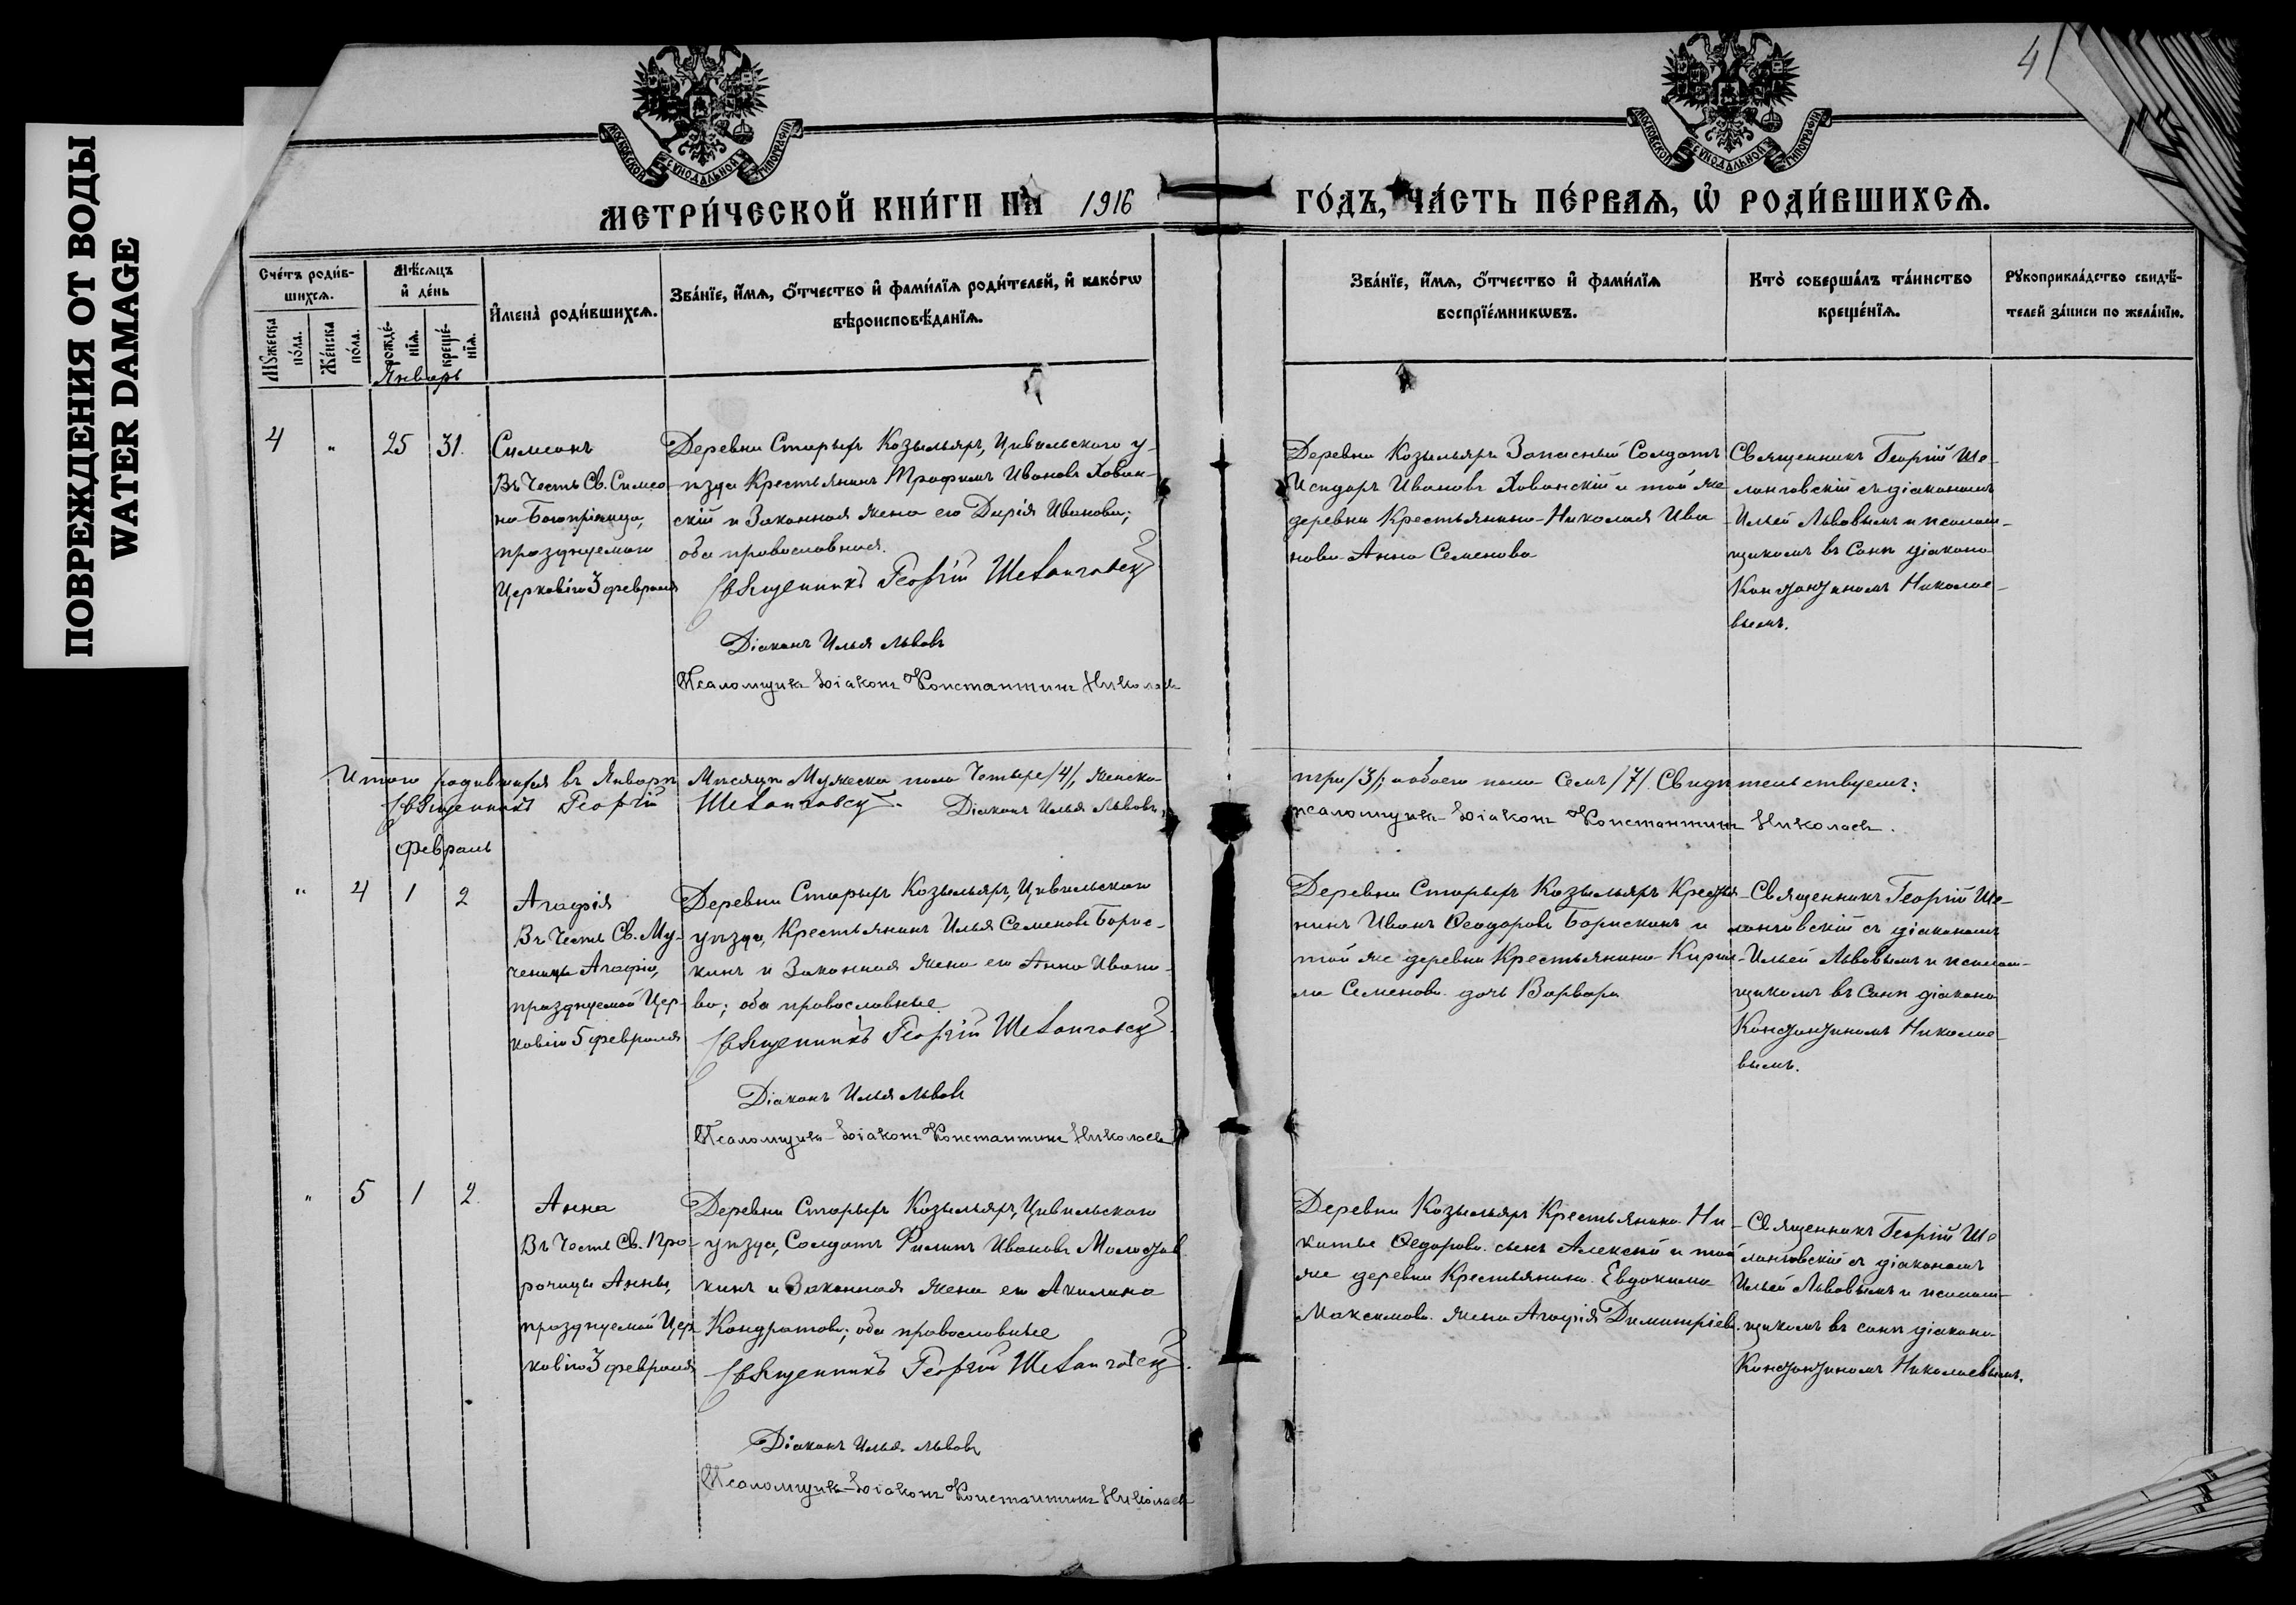 ПОВРЕЖДЕНИЯ ОТ ВОДЫ
WATER DAMAGE
4
МОСКОВСКОЙ СѴНОДАЛЬНОЙ ТИПОГРАФІИ
МОСКОВСКОЙ СѴНОДАЛЬНОЙ ТИПОГРАФІИ
МЕТРИ́ЧЕСКОЙ КНИ́ГИ НА 1916
ГО́ДЪ, ЧА́СТЬ ПЕ́РВАѦ, Ѡ҆ РОДИ́ВШИХСѦ.
Сче́тъ роди́в-
шихсѧ.
Мꙋжеска
по́ла.
Же́нска
по́ла.
Мѣ́сѧцъ
и҆ де́нь
рожде́-
нїѧ.
креще́-
нїѧ.
И҆мена̀ роди́вшихсѧ.
Зва́нїе, и҆́мѧ, ѻ҆́тчество и҆ фами́лїѧ роди́телей, и҆ како́гѡ
вѣроисповѣ́данїѧ.
Зва́нїе, и҆́мѧ, ѻ҆́тчество и҆ фами́лїѧ
воспрїе́мникѡвъ.
Кто̀ соверша́лъ та́инство
креще́нїѧ.
Рꙋкоприкла́дство свидѣ́-
телей за́писи по жела́нїю.
Январь
4 " 25 31.
Симеонъ
Въ Честь Св. Симео-
на Богопріимца,
празднуемаго
Церковію 3 февраля
Деревни Старыхъ Козыльяръ, Цивильскаго у-
ѣзда Крестьянинъ Трофимъ Ивановъ Хован-
скій и Законная жена его Дарія Иванова;
оба православная.
Священникъ Георгій Шеланговскій
Діаконъ Илья Львовъ
Псаломщикъ-діаконъ Константинъ Николаевъ
Деревни Козыльяръ Запасный Солдатъ
Исидоръ Ивановъ Хованскій и той же
деревни Крестьянина Николая Ива-
нова Анна Семенова
Священникъ Георгій Ше-
ланговскій съ діакономъ
Ильей Львовымъ и псалом-
щикомъ въ санѣ діакона
Константиномъ Николае-
вымъ.
Итого родившихся въ Январѣ Мѣсяцѣ Мужеска пола Четыре /4/, женска
три /3/; а обоего пола Семь /7/. Свидѣтельствуемъ:
Священникъ Георгій Шеланговскій. Діаконъ Илья Львовъ,
псаломщикъ-діаконъ Константинъ Николаевъ.
Февраль
" 4 1 2
Агафія
Въ Честь Св. Му-
ченицы Агафіи,
празднуемой Цер-
ковію 5 февраля
Деревни Старыхъ Козыльяръ, Цивильскаго
уѣзда, Крестьянинъ Илья Семеновъ Борис-
кинъ и Законная жена его Анна Ивано-
ва; оба православные
Священникъ Георгій Шеланговскій.
Діаконъ Илья Львовъ
Псаломщикъ-діаконъ Константинъ Николаевъ
Деревни Старыхъ Козыльяръ Крестья-
нинъ Иванъ Ѳеодоровъ Борискинъ и
той же деревни Крестьянина Кирил-
ла Семенова дочь Варвара
Священникъ Георгій Ше-
ланговскій съ діакономъ
Ильей Львовымъ и псалом-
щикомъ въ санѣ діакона
Константиномъ Николае-
вымъ.
" 5 1 2.
Анна
Въ Честь Св. Про-
рочицы Анны,
празднуемой Цер-
ковію 3 февраля
Деревни Старыхъ Козыльяръ, Цивильскаго
уѣзда, Солдатъ Филипъ Ивановъ
кинъ и Законная жена его Акилина
Кондратова; оба православные
Священникъ Георгій Шеланговскій.
Діаконъ Илья Львовъ
Псаломщикъ-діаконъ Константинъ Николаевъ
Деревни Козыльяръ Крестьянина Ни-
киты Ѳедорова сынъ Алексій и той
же деревни Крестьянина Евдокима
Максимова жена Агафія Димитріева.
Священникъ Георгій Ше-
ланговскій съ діакономъ
Ильей Львовымъ и псалом-
щикомъ въ санѣ діакона
Константиномъ Николаевымъ.